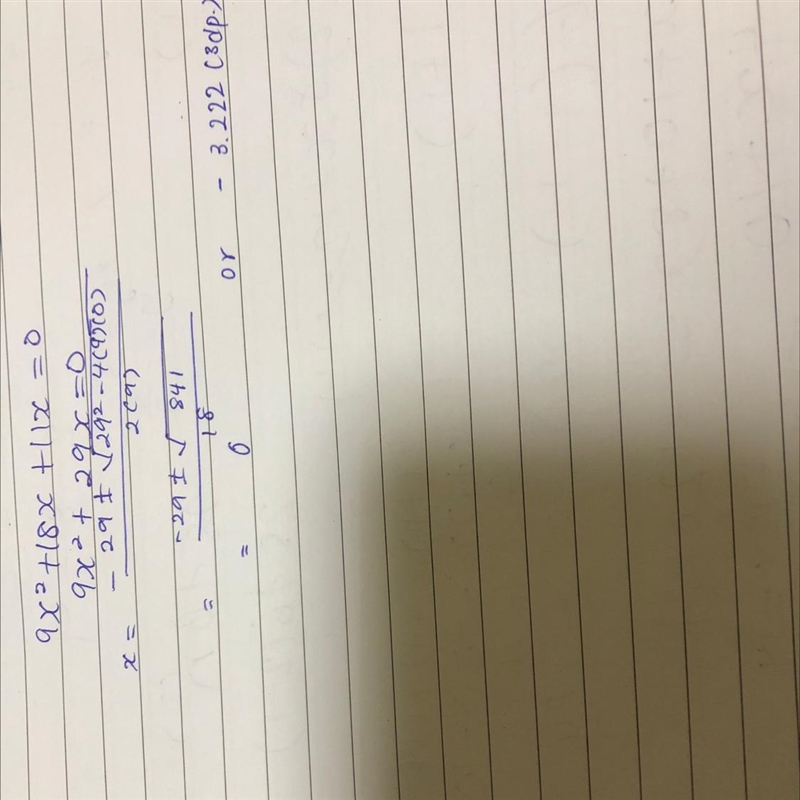 9x² + 18x + 11x = 0
9x² + 29x = 0
x = -29 ± √29² - 4(9)(0) / 2(9)
= -29 ± √841 / 18
= 0 or -3.222 (3dp.)